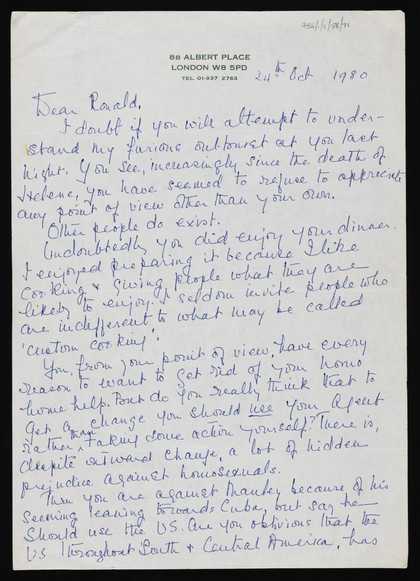 68 ALBERT PLACE
LONDON W8 5PD
TEL 01-937 2763
24th Oct 1980
Dear Ronald,
I doubt if you will attempt to under-
stand my furious outburst at you last
night. You see, increasingly since the death of
Helene, you have seemed to refuse to appreciate
any point of view other than your own.
Other people do exist.
Undoubtedly you did enjoy your dinner.
I enjoyed preparing it because I like
cooking & giving people what they are
likely to enjoy. I seldom invite people who
are indifferent to what may be called
'custom cooking'.
You, from your point of view, have every
reason to want to get rid of your homo
home help. But do you really think that to
get a change you should use your agent
rather than taking done action yourself? There is,
despite outward change, a lot of hidden
prejudice against homosexuals.
Then you are against Manley because of his
seeming leaning towards Cuba, but say he
should use the US. Are you oblivious that the
US throughout South & Central America, has